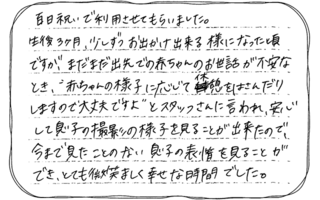 百日祝いで利用させてもらいました。
生後3ヶ月、少しずつお出かけ出来る様になった頃
ですが、まだまだ出先での赤ちゃんのお世話が不安な
とき、"赤ちゃんの様子に応じて休憩をはさんだり
しますので大丈夫ですよ"とスタッフさんに言われ、安心
して息子の撮影の様子を見ることが出来たので、
今まで見たことのない息子の表情を見ることが
でき、とても微笑ましく幸せな時間でした。